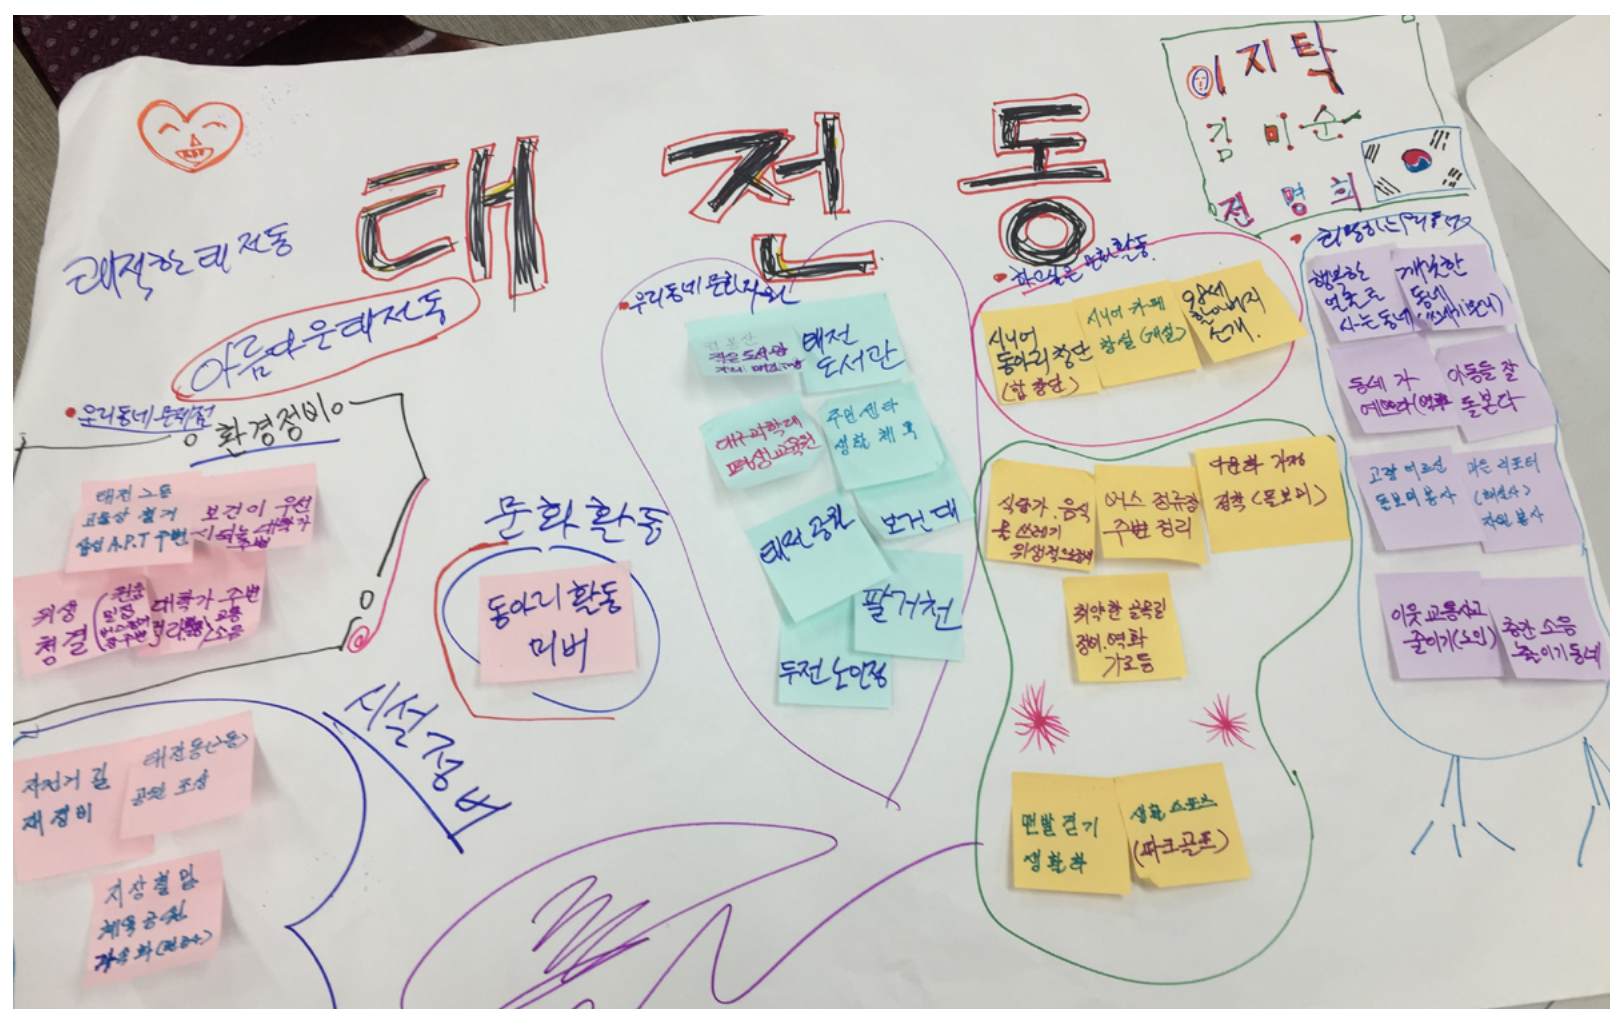 태전동
이지탁
김미순
전명희
쾌적한 태전동
아름다운 태전동
우리동네 문제점
환경정비
태전 2동
철거
A.P.T 주변
보건이 우선
대학가
주변
위생
청결
대학가 주변
교통
소음
시설정비
자전거 길
재정비
태전동(2동)
공원 조성
지상철 밑
체육공원
문화활동
동아리 활동
미비
우리동네 문화자원
작은 도서관
태전
도서관
대구과학대
평생교육원
주민센타
생활체육
태전공원
보건대
팔거천
두전 노인정
하고싶은 문화활동
시니어
동아리 창단
(합창단)
시니어 카페
창설(개설)
98세
할아버지
소개.
식당가. 음식
물 쓰레기
위생적
버스 정류장
주변 정리
다문화 가정
정착(돌보미)
취약한 골목길
정비. 벽화
가로등
맨발 걷기
생활화
생활스포츠
(파크골프)
희망하는 우리동네
행복한
이웃으로
사는 동네
깨끗한
동네
(쓰레기 분리)
동네가
예쁘다(벽화)
아동들 잘
돌본다
고령 어르신
돌보미 봉사
마을 리포터
(해설사)
자원봉사
이웃 교통사고
줄이기(노인)
층간 소음
줄이기 동네